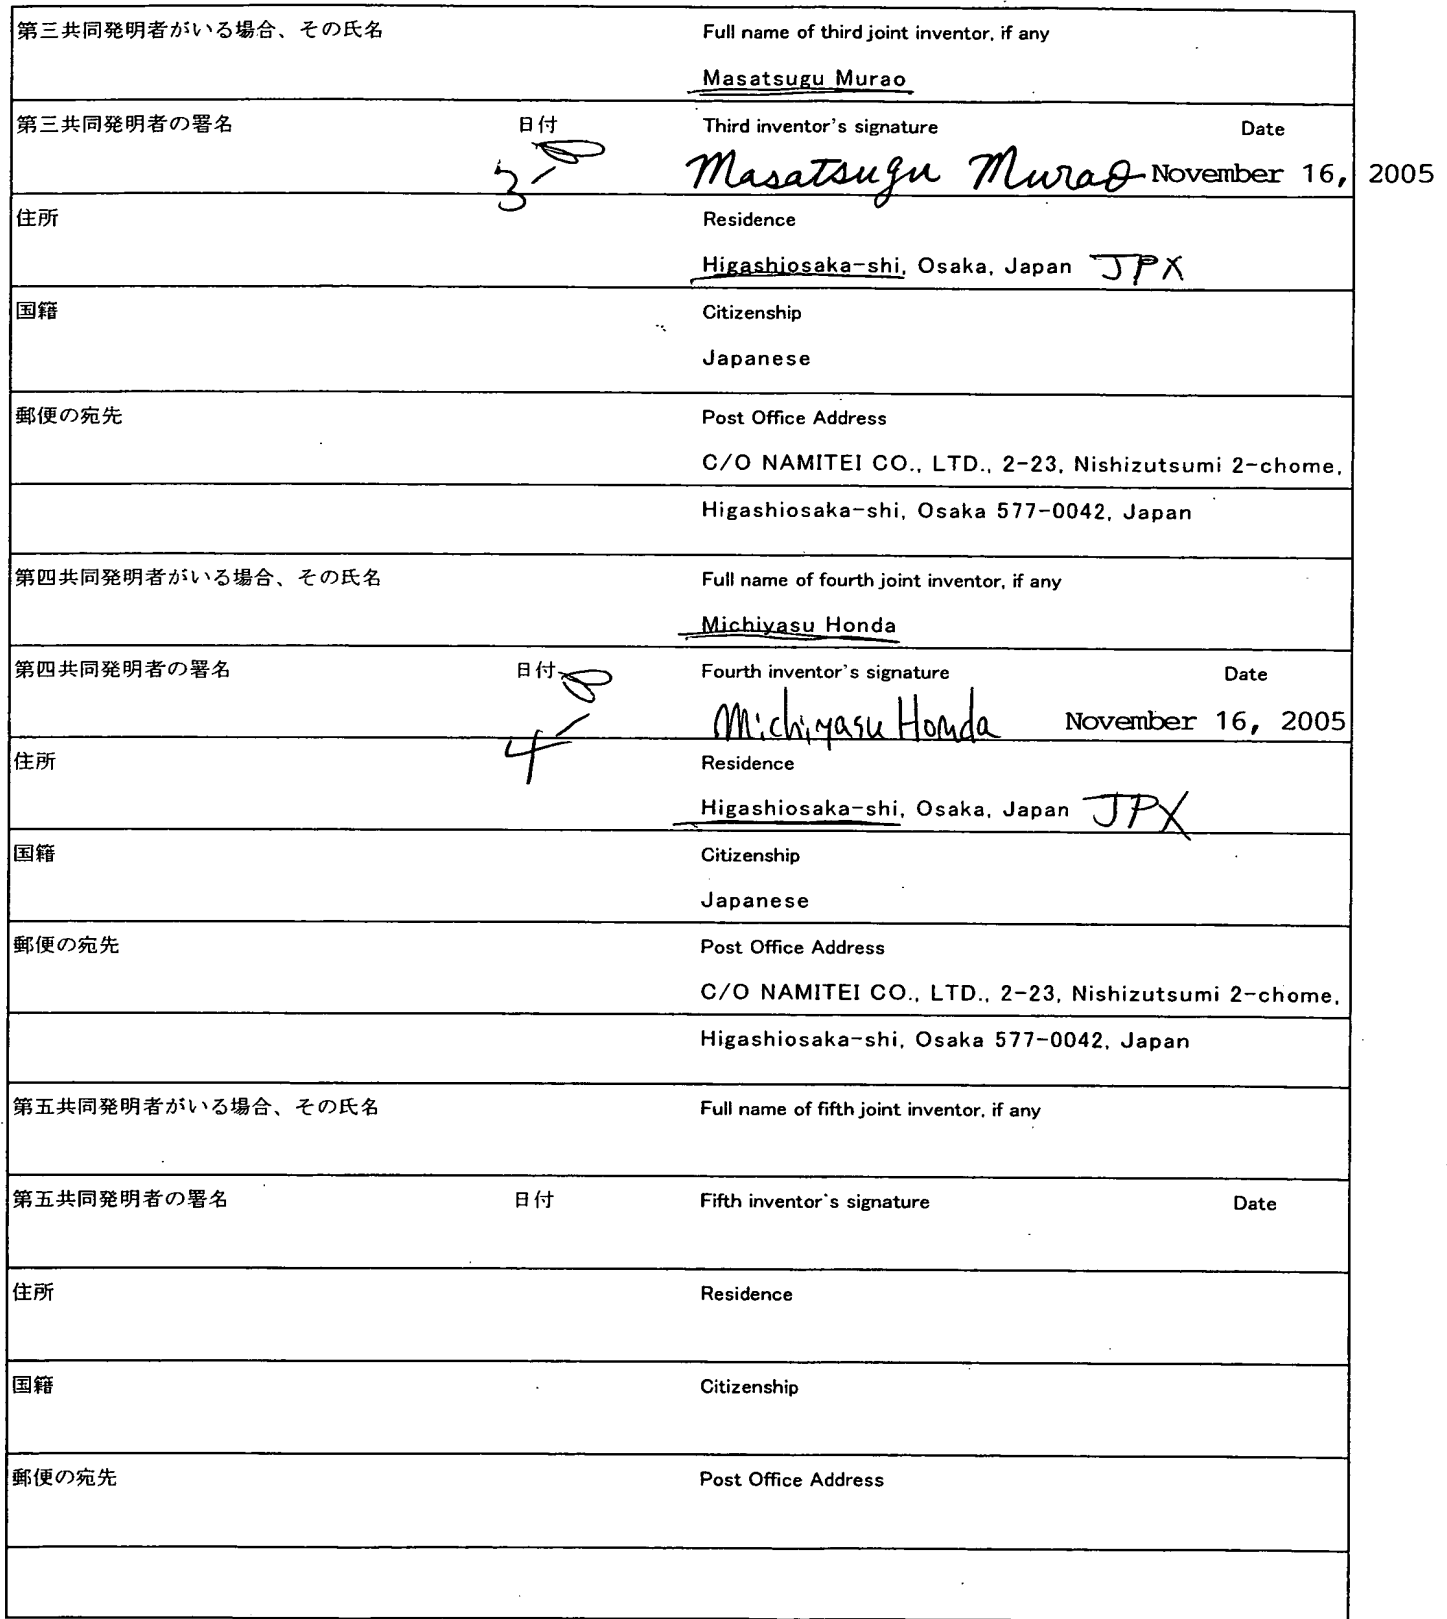 第三共同発明者がいる場合、その氏名 Full name of third joint inventor, if any
Masatsugu Murao
第三共同発明者の署名 日付 Third inventor's signature Date
3- Masatsugu Murao November 16, 2005
住所 Residence
Higashiosaka-shi, Osaka, Japan JPX
国籍 Citizenship
Japanese
郵便の宛先 Post Office Address
C/O NAMITEI CO., LTD., 2-23, Nishizutsumi 2-chome,
Higashiosaka-shi, Osaka 577-0042, Japan
第四共同発明者がいる場合、その氏名 Full name of fourth joint inventor, if any
Michiyasu Honda
第四共同発明者の署名 日付 Fourth inventor's signature Date
4- Michiyasu Honda November 16, 2005
住所 Residence
Higashiosaka-shi, Osaka, Japan JPX
国籍 Citizenship
Japanese
郵便の宛先 Post Office Address
C/O NAMITEI CO., LTD., 2-23, Nishizutsumi 2-chome,
Higashiosaka-shi, Osaka 577-0042, Japan
第五共同発明者がいる場合、その氏名 Full name of fifth joint inventor, if any
第五共同発明者の署名 日付 Fifth inventor's signature Date
住所 Residence
国籍 Citizenship
郵便の宛先 Post Office Address